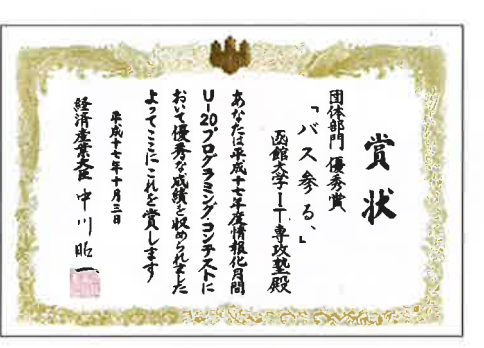 賞状
団体部門 優秀賞
「バス参る、」
函館大学IT専攻塾殿
あなたは平成十七年度情報化月間
U-20プログラミング・コンテストに
おいて優秀な成績を収められました
よってここにこれを賞します
平成十七年十月三日
経済産業大臣 中川昭一